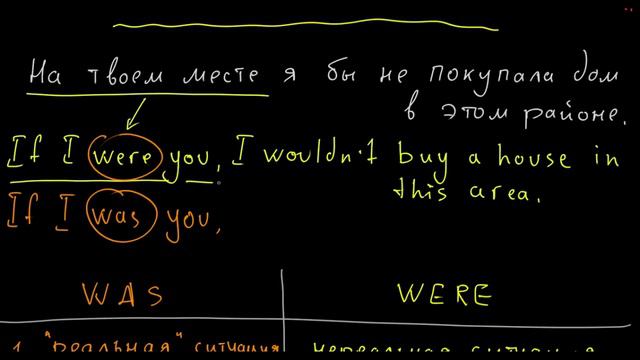 На твоем месте я бы не покупала дом
в этом районе.
If I were you, I wouldn't buy a house in
this area.
If I was you,
WAS WERE
1. "реальная" ситуация нереальная ситуация